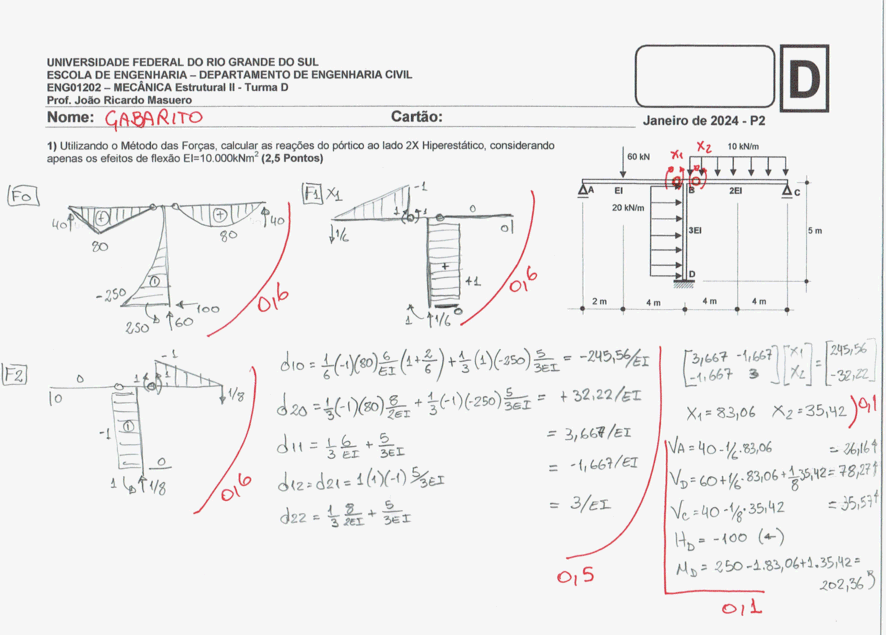 UNIVERSIDADE FEDERAL DO RIO GRANDE DO SUL
ESCOLA DE ENGENHARIA – DEPARTAMENTO DE ENGENHARIA CIVIL
ENG01202 – MECÂNICA Estrutural II - Turma D
Prof. João Ricardo Masuero
Nome: GABARITO Cartão:
D
Janeiro de 2024 - P2
1) Utilizando o Método das Forças, calcular as reações do pórtico ao lado 2X Hiperestático, considerando
apenas os efeitos de flexão EI=10.000kNm² (2,5 Pontos)
60 kN X1 X2 10 kN/m
A EI B 2EI C
20 kN/m
3EI
5 m
D
2 m 4 m 4 m 4 m
F0
40 + + 40
80 80
-250
100
250 60
0,6
F1 X1
-1
1 1 0
1/6 0
+
+1
0
1 1/6
0,6
F2
-1
0 1 1
0 1/8
-1
0
1 1/8
0,6
d10 = 1/6(-1)(80) 6/EI (1+2/6) + 1/3(1)(-250) 5/3EI = -245,56/EI
d20 = 1/3(-1)(80) 8/2EI + 1/3(-1)(-250) 5/3EI = +32,22/EI
d11 = 1/3 6/EI + 5/3EI = 3,667/EI
d12 = d21 = 1(1)(-1) 5/3EI = -1,667/EI
d22 = 1/3 8/2EI + 5/3EI = 3/EI
0,5
[3,667 -1,667] [X1] = [245,56]
[-1,667 3] [X2] [-32,22]
X1 = 83,06 X2 = 35,42 0,1
VA = 40 - 1/6·83,06 = 26,16↑
VD = 60 + 1/6·83,06 + 1/8 35,42 = 78,27↑
VC = 40 - 1/8·35,42 = 35,57↑
HD = -100 (←)
MD = 250 - 1.83,06 + 1.35,42 =
202,36
0,1